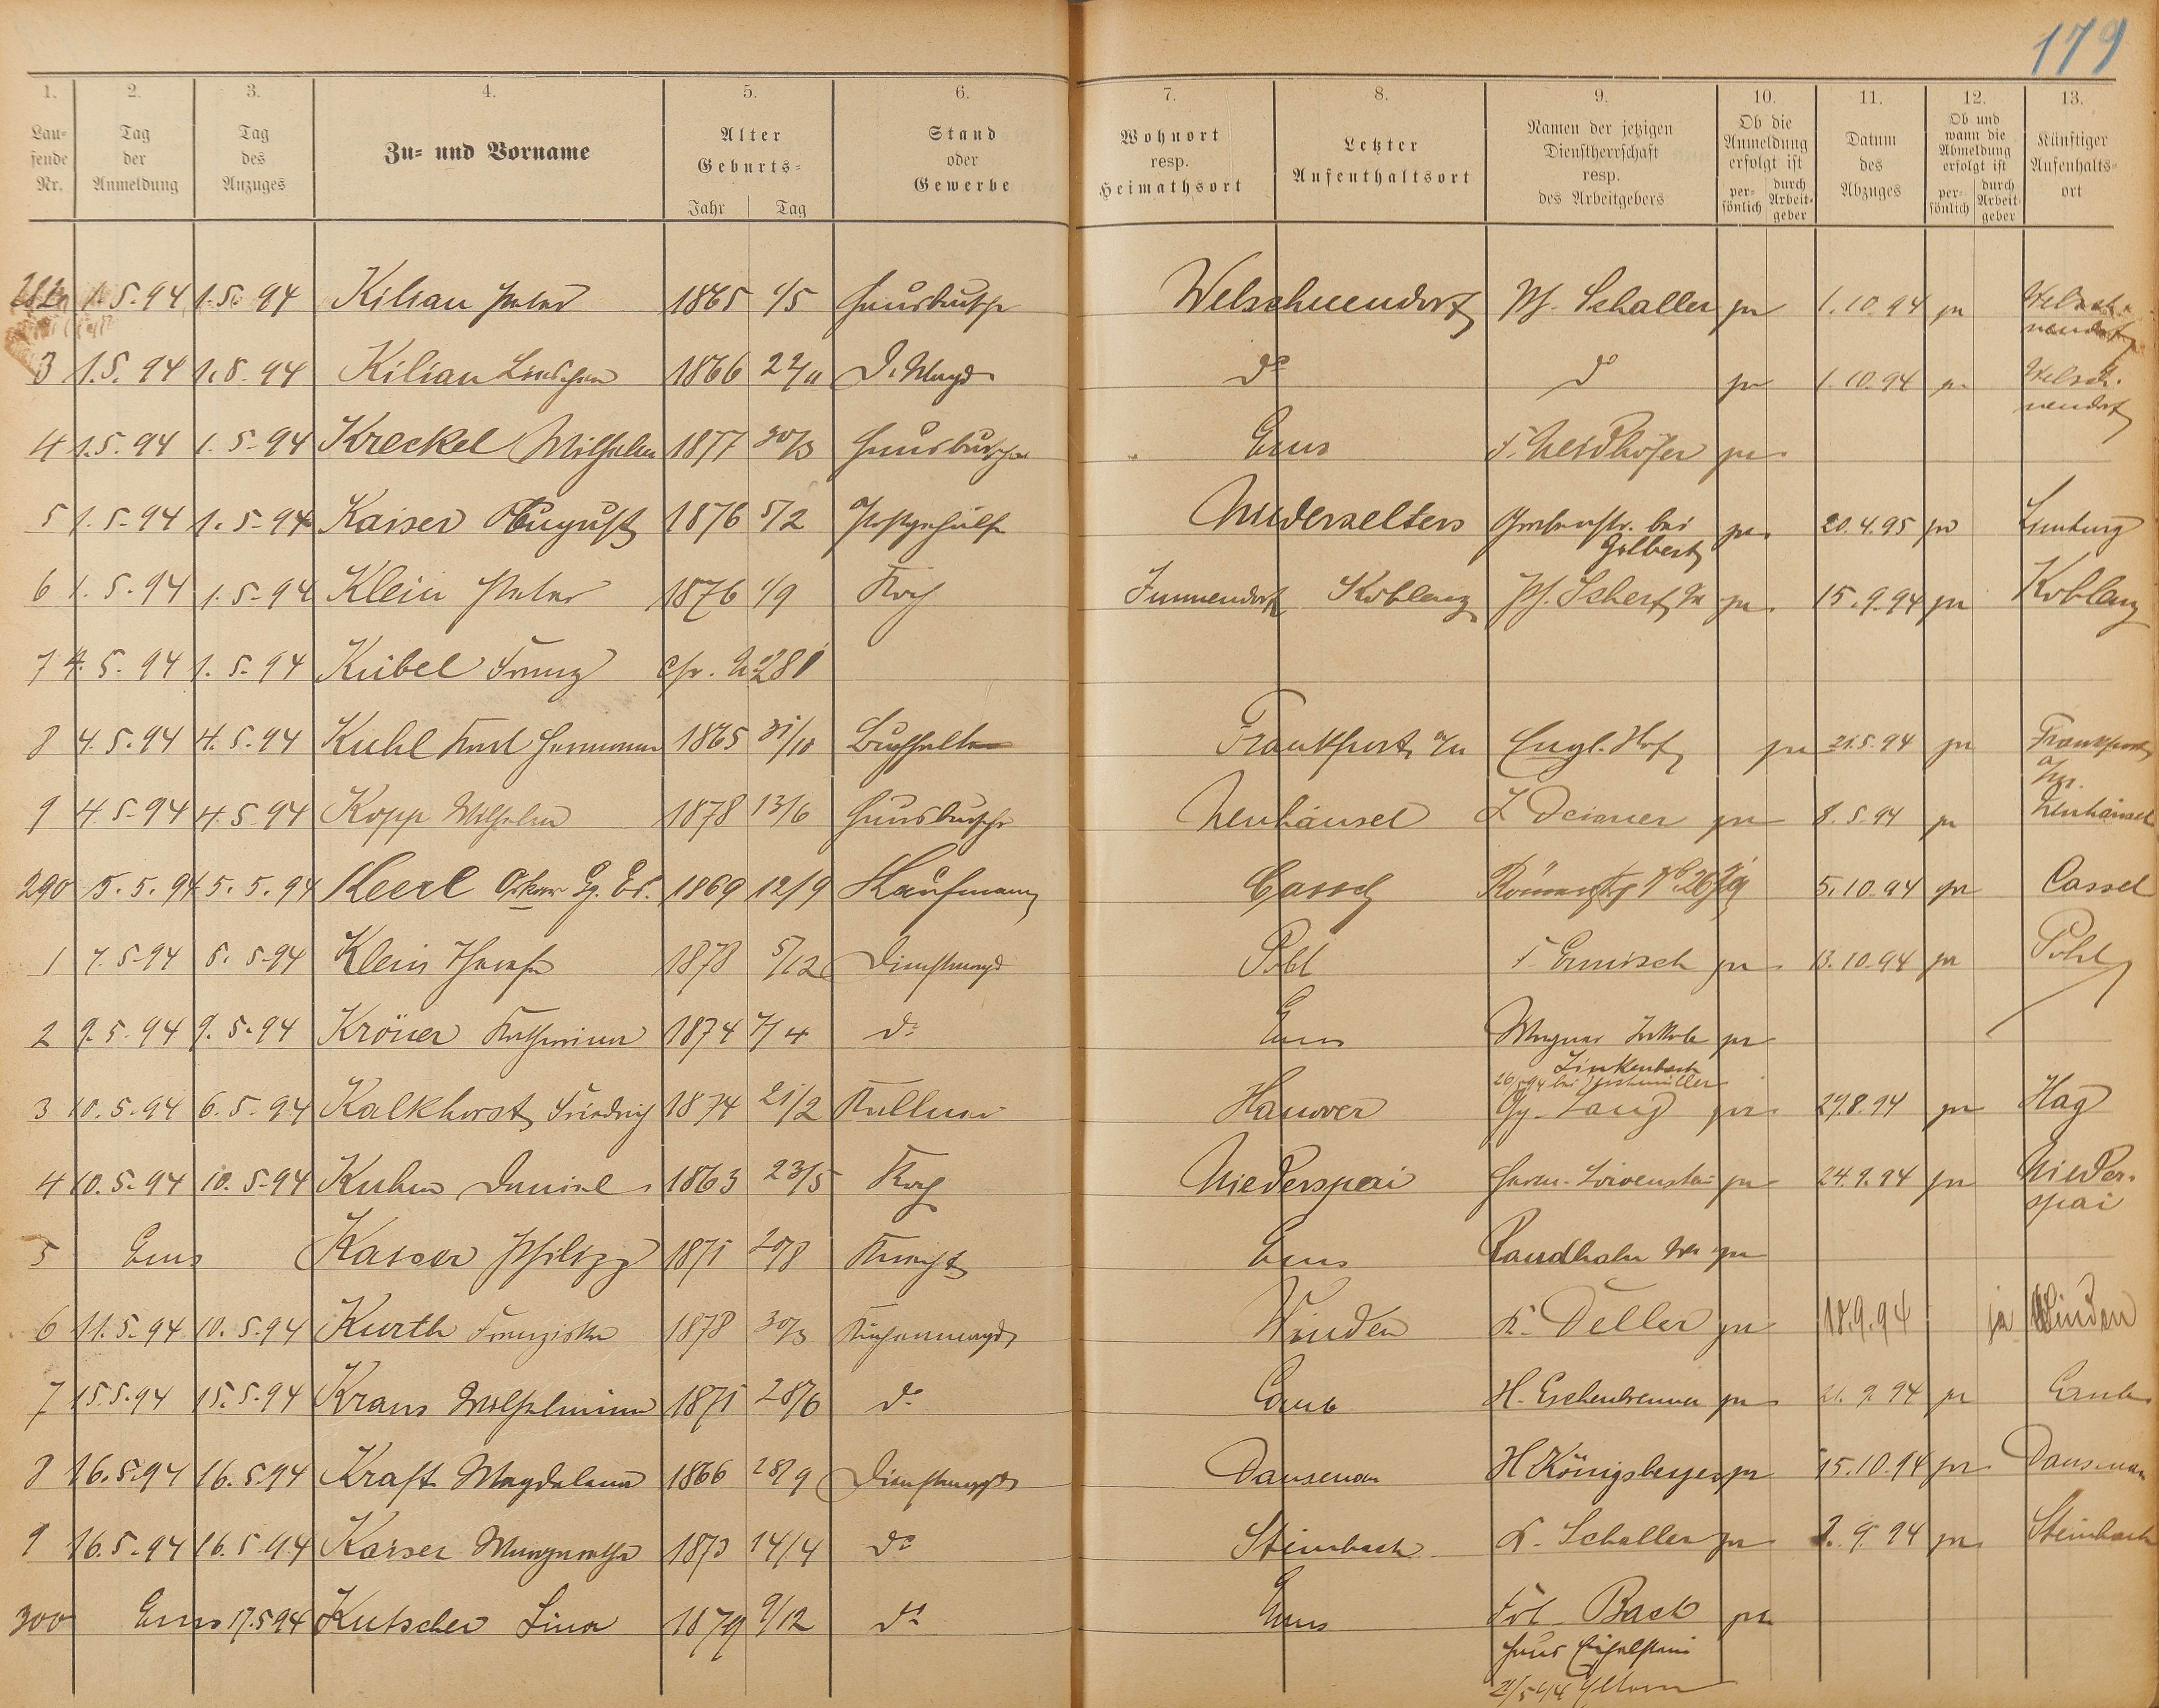 179
1. 2. 3. 4. 5. 6. 7. 8. 9. 10. 11. 12. 13.
Lau=
fende
Nr.
Tag
der
Anmeldung
Tag
des
Anzuges
Zu= und Vorname
Alter
Geburts=
Jahr Tag
Stand
oder
Gewerbe
Wohnort
resp.
Heimathsort
Letzter
Aufenthaltsort
Namen der jetzigen
Dienstherrschaft
resp.
des Arbeitgebers
Ob die
Anmeldung
erfolgt ist
per=
sönlich
durch
Arbeit=
geber
Datum
des
Abzuges
Ob und
wann die
Abmeldung
erfolgt ist
per=
sönlich
durch
Arbeit
geber
Künftiger
Aufenthalts=
ort
1.5.94 1.5.94 Kilian Peter 1865 1/5 Hausbursche Welschneudorf Schaller 1.10.94 Welsch-
neudorf
3 1.5.94 1.5.94 Kilian 1866 D. Magd do do 1.10.94 Welsch-
neudorf
4 1.5.94 1.5.94 Kreckel Wilhelm 1877 30/3 Hausbursche Ems F. Neidhöfer
5 1.5.94 1.5.94 Kaiser August 1876 5/2 Postgehülfe Niederselters Grabenstr. bei 20.4.95 Limburg
Gilbert
6 1.5.94 1.5.94 Klein Peter 1876 1/9 Koch Immendorf Koblenz 15.9.94 Koblenz
7 4.5.94 1.5.94 Kübel Franz cfr. 281
8 4.5.94 4.5.94 Kuhl Karl Hermann 1865 31/10 Buchhalter Frankfurt a/M Engl. Hof 21.5.94 Frankfurt
a/M.
9 4.5.94 4.5.94 Kopp Wilhelm 1878 13/6 Hausbursche Neuhäusel 8.5.94 Neuhäusel
290 5.5.94 5.5.94 Keerl Oskar Gg. Ed. 1869 12/9 Kaufmann Cassel 5.10.94 Cassel
1 7.5.94 5.5.94 Klein Therese 1878 5/12 Dienstmagd Pohl F. Ermisch 13.10.94 Pohl
2 9.5.94 9.5.94 Kröner Katharina 1874 7/4 do Ems Wagner Jakob
Linkenbach
3 10.5.94 6.5.94 Kalkhorst Friedrich 1874 21/2 Kellner Hanover Gg. Lang 29.8.94 Hag
4 10.5.94 10.5.94 Kuhn Daniel 1863 23/5 Koch Niederspai Löwenstein 24.9.94 Nieder-
spai
5 Ems Kaiser Philipp 1871 20/8 Knecht Ems
6 11.5.94 10.5.94 Kurth Franziska 1878 30/3 Küchenmagd Winden K. Deller 18.9.94 ja Winden
7 15.5.94 15.5.94 Kraus Wilhelmine 1871 28/6 do Caub H. Eschenbrenner 21.9.94 Caub
8 16.5.94 16.5.94 Kraft Magdalena 1866 28/9 Dienstmagd Dausenau H Königsberger 15.10.94 Dausenau
9 16.5.94 16.5.94 Kaiser Margarethe 1873 14/4 do Steinbach K. Schaller 2.9.94 Steinbach
300 Ems 17.5.94 Kutscher Lina 1879 9/12 do Ems Frl. Back
Haus